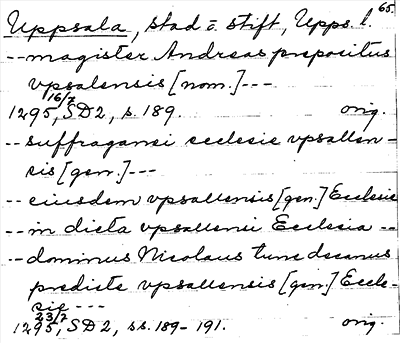 65.
Uppsala, stad o. stift, Upps. l.
-- magister Andreas prepositus
vpsalensis [nom.] ---
16/7
1295, SD2, s. 189. orig.
-- suffraganei ecclesie vpsallen-
sis [gen.] ---
-- eiusdem vpsallensis [gen.] Ecclesie
-- in dicta vpsallensi Ecclesia --
-- dominus Nicolaus tunc decanus
predicte vpsallensis [gen.] Eccle-
sie ---
23/7
1295, SD2, ss. 189-191. orig.